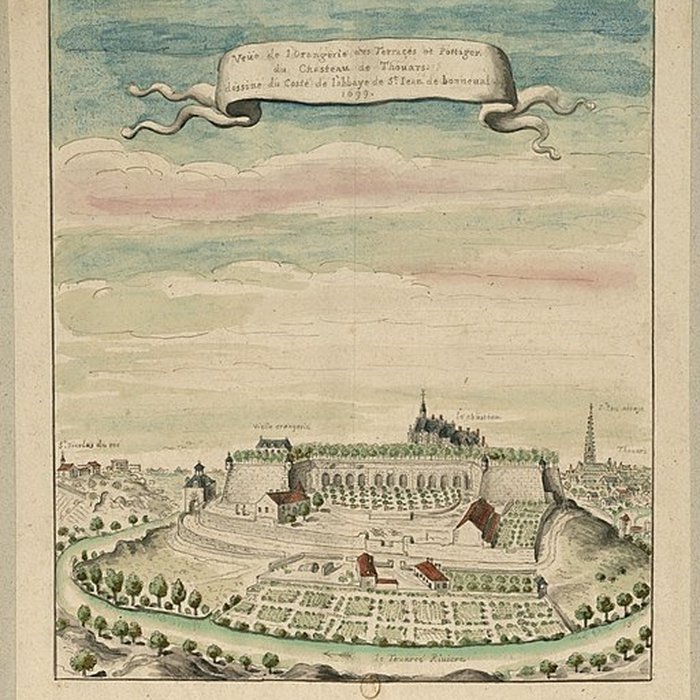 Veüe de l'Orangerie des Terraces et Potager
du Chasteau de Thouars.
dessiné du Costé de l'abbaye de St. Iean de bonneual
1699.
le château
Vielle orangerie
St. Nicolas du roc
Thouars
le Touarée Riuiere